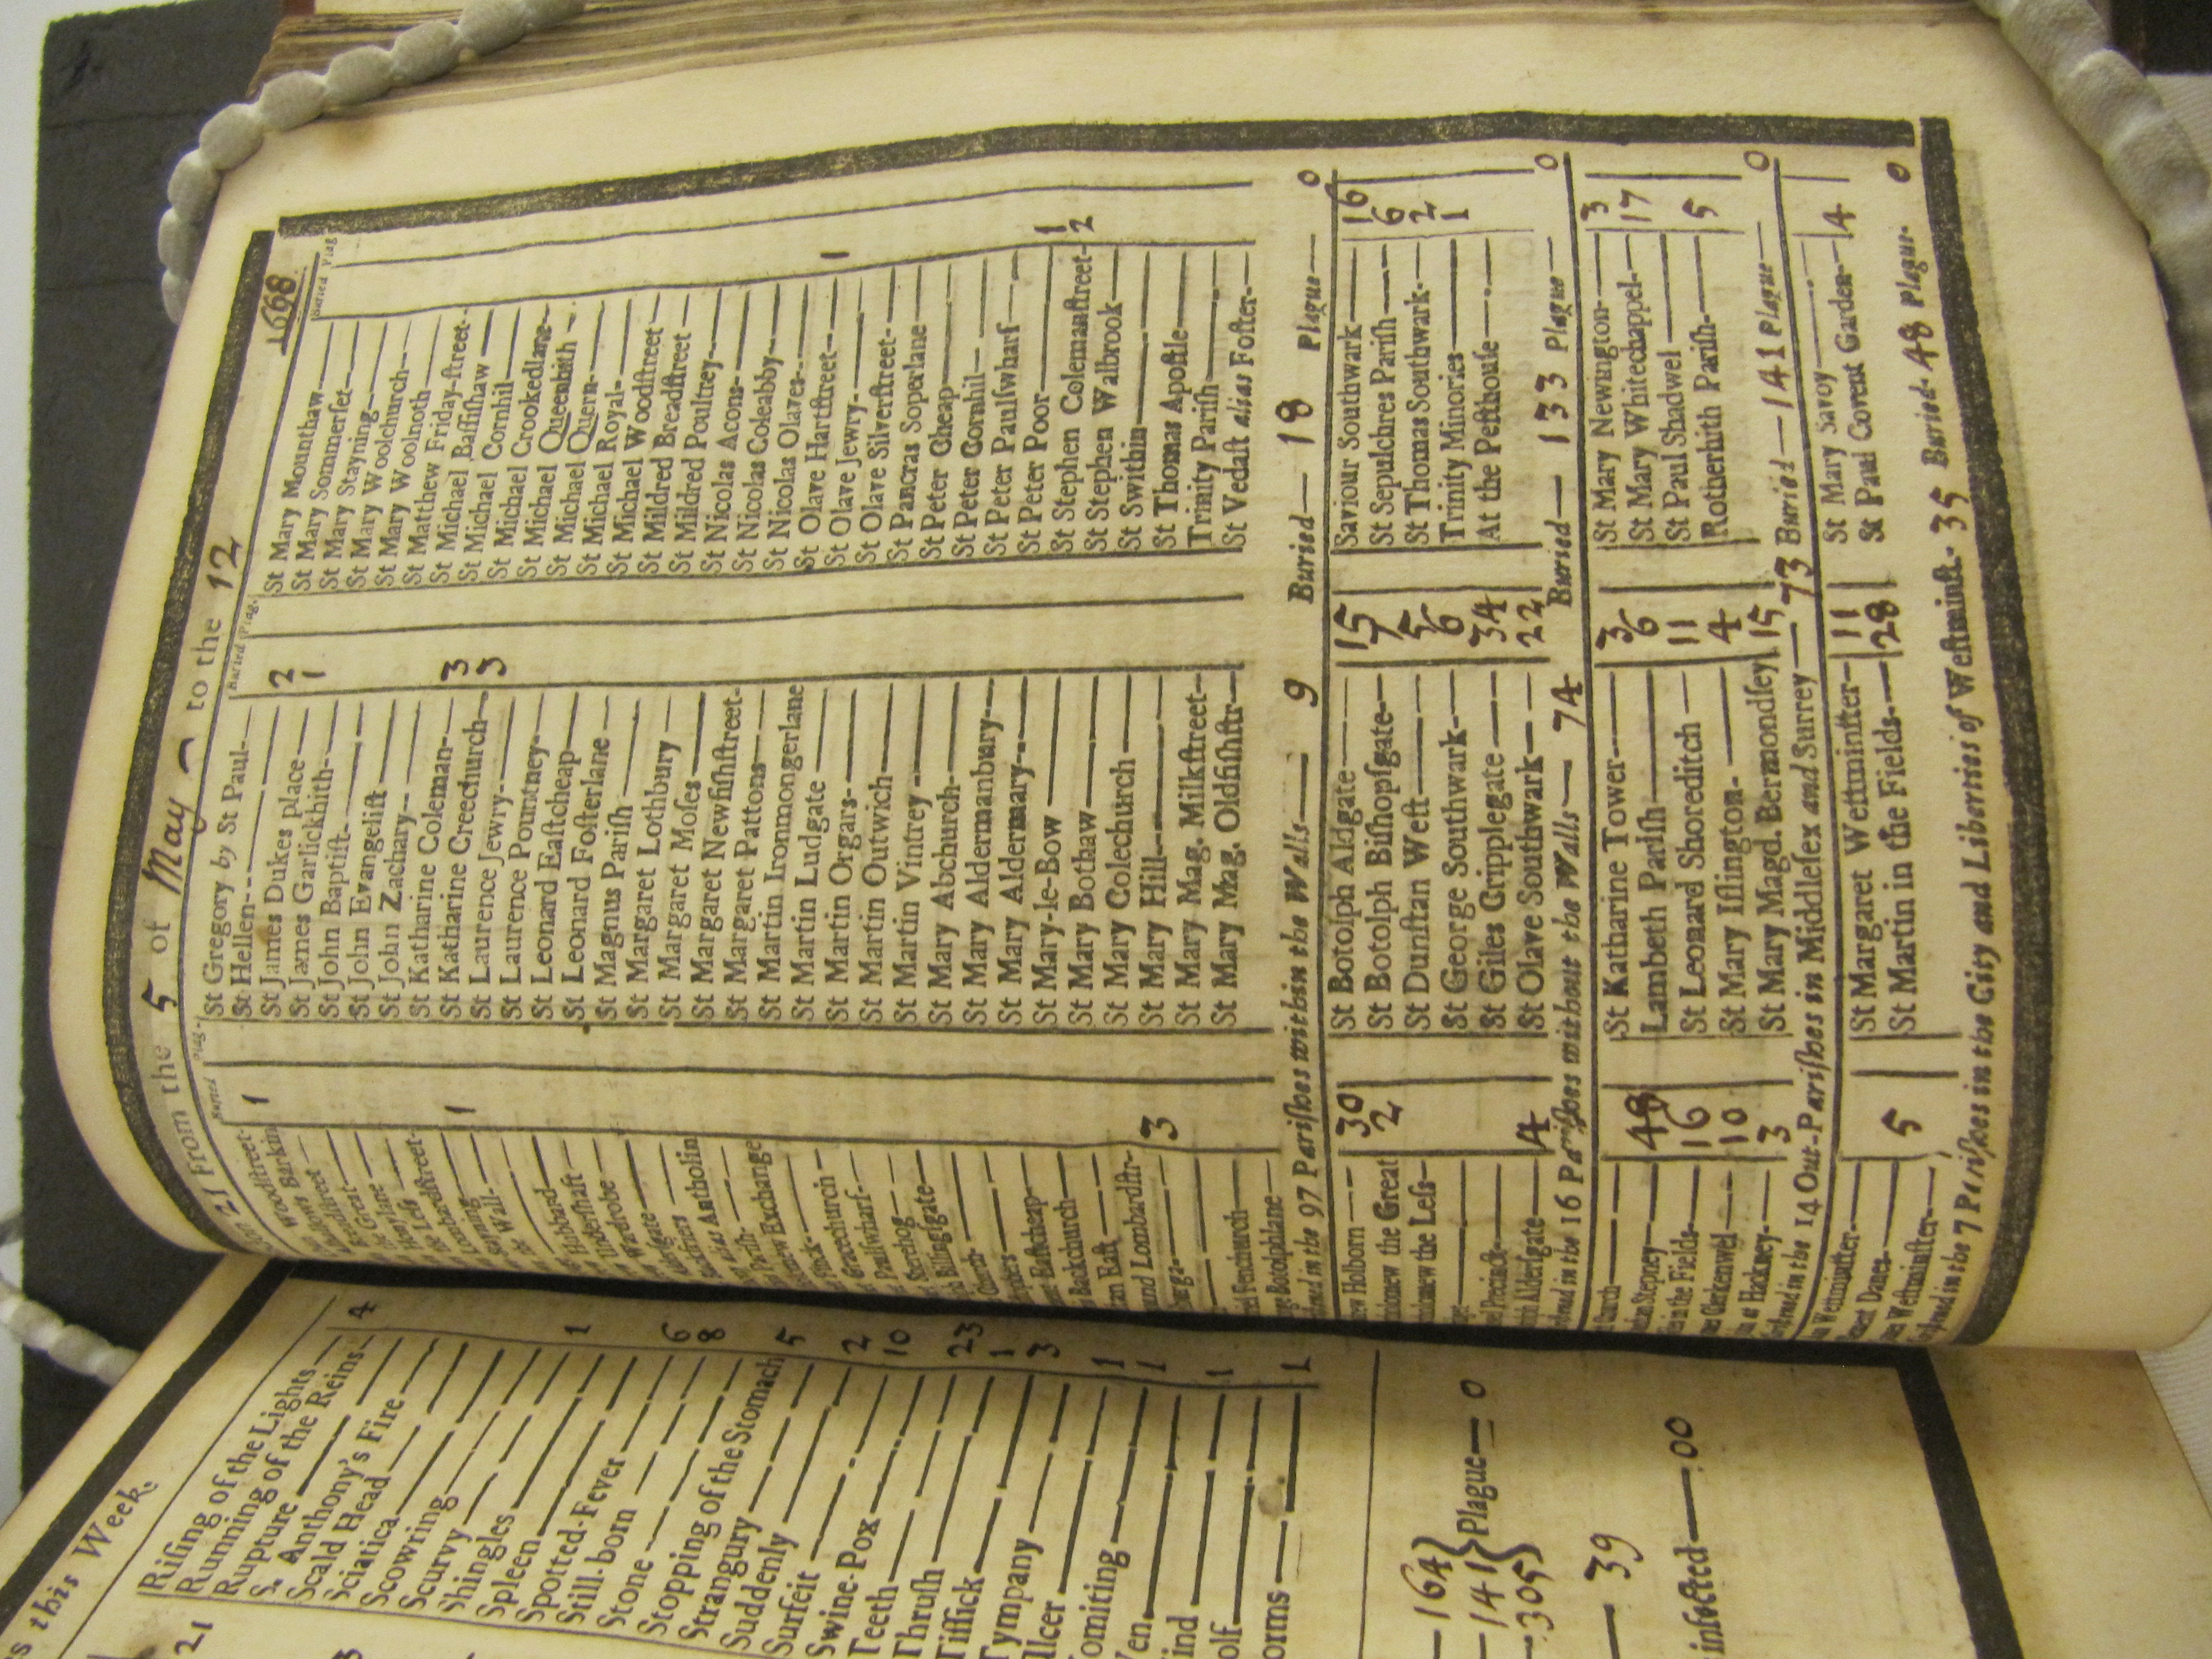 21 From the 5 of May to the 12 1668
Buried Plag. Buried Plag. Buried Plag
Woodstreet- St Gregory by St Paul- St Mary Mounthaw
Barkin 1 St Hellen St Mary Sommerset
St James Dukes place 2 St Mary Stayning
Great St James Garlickhith 1 St Mary Woolchurch
St John Baptist St Mary Woolnoth
Less St John Evangelist St Matthew Friday-street
Lumbardstreet- St John Zachary St Michael Bassishaw
St Katharine Coleman 3 St Michael Cornhil
Stayning 1 St Katharine Creechurch 3 St Michael Crookedlane
Wall St Laurence Jewry St Michael Queenhith
St Laurence Pountney St Michael Quern
Hubbard St Leonard Eastcheap St Michael Royal
Undershaft St Leonard Fosterlane St Michael Woodstreet
Wardrobe St Magnus Parish St Mildred Breadstreet
St Margaret Lothbury St Mildred Poultney
St Margaret Moses St Nicolas Acons
alias Antholin St Margaret Newfishstreet St Nicolas Coleabby
Parish St Margaret Pattons St Nicolas Olaves
Exchange St Martin Ironmongerlane St Olave Hartstreet 1
St Martin Ludgate St Olave Jewry
Gracechurch St Martin Orgars St Olave Silverstreet
Paulswharf St Martin Outwich St Pancras Soperlane
Sherehog St Martin Vintrey St Peter Cheap
Billingsgate St Mary Abchurch St Peter Cornhil
Church St Mary Aldermanbury St Peter Paulswharf
St Mary Aldermary St Peter Poor 1
Eastcheap St Mary-le-Bow St Stephen Colemanstreet 2
Backchurch St Mary Bothaw St Stephen Walbrook
East St Mary Colechurch St Swithin
Lombardstr- St Mary Hill St Thomas Apostle
3 St Mary Mag. Milkstreet Trinity Parish
Fenchurch St Mary Mag. Oldfishstr St Vedast alias Foster
Botolphlane
in the 97 Parishes within the Walls 9 Buried 18 Plague 0
Holborn 30 St Botolph Aldgate 15 Saviour Southwark 16
the Great 2 St Botolph Bishopsgate 5 St Sepulchres Parish 6
the Less St Dunstan West 6 St Thomas Southwark 2
St George Southwark Trinity Minories 1
Precinct St Giles Cripplegate 34 At the Pesthouse
Aldersgate 4 St Olave Southwark 22
in the 16 Parishes without the Walls 74 Buried 133 Plague 0
St Katharine Tower 3 St Mary Newington 3
Stepney 48 Lambeth Parish 6 St Mary Whitechappel 17
in the Fields 16 St Leonard Shoreditch 11 St Paul Shadwel
Clerkenwel 10 St Mary Islington 4 Rotherhith Parish 5
at Hackney 3 St Mary Magd. Bermondsey 15
in the 14 Out-Parishes in Middlesex and Surrey 73 Buried 141 Plague 0
Westminster St Margaret Westminster 11 St Mary Savoy
Danes St Martin in the Fields 28 St Paul Covent Garden 4
Westminster 5
in the 7 Parishes in the City and Liberties of Westminst. 35 Buried 48 Plague 0
this Week.
21
Rising of the Lights 4
Running of the Reins
Rupture
S. Anthony's Fire
Scald Head
Sciatica
Scowring
Scurvy 1
Shingles
Spleen
Spotted-Fever 6
Still-born 8
Stone
Stopping of the Stomach 5
Strangury
Suddenly 2
Surfeit 10
Swine-Pox
Teeth 23
Thrush 1
Tissick 3
Tympany
Ulcer 1
Vomiting 1
Wen
Wind 1
Wolf
Worms 1
164
141
305
Plague 0
39
infected 00